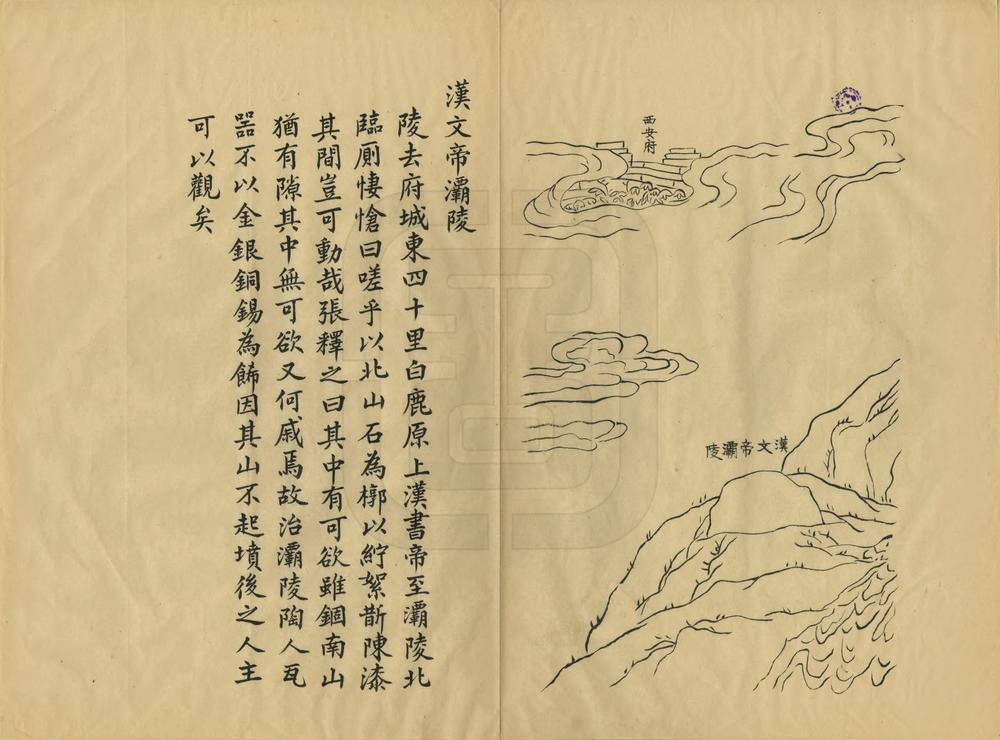 西安府
漢文帝灞陵
漢文帝灞陵
陵去府城東四十里白鹿原上漢書帝至灞陵北
臨厠悽愴曰嗟乎以北山石為槨以紵絮斮陳漆
其間豈可動哉張釋之曰其中有可欲雖錮南山
猶有隙其中無可欲又何戚焉故治灞陵陶人瓦
噐不以金銀銅錫為餙因其山不起墳後之人主
可以觀矣